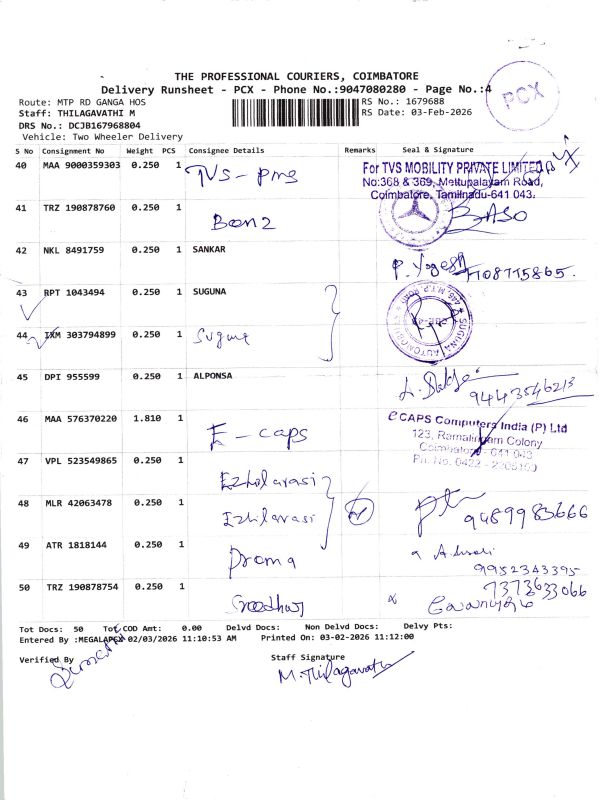 THE PROFESSIONAL COURIERS, COIMBATORE
Delivery Runsheet - PCX - Phone No.:9047080280 - Page No.:4
PCX
Route: MTP RD GANGA HOS
RS No.: 1679688
Staff: THILAGAVATHI M
RS Date: 03-Feb-2026
DRS No.: DCJB167968804
Vehicle: Two Wheeler Delivery
S No Consignment No Weight PCS Consignee Details Remarks Seal & Signature
40 MAA 9000359303 0.250 1 TVS - Pms
For TVS MOBILITY PRIVATE LIMITED
No:368 & 369, Mettupalayam Road,
Coimbatore, Tamilnadu-641 043.
41 TRZ 190878760 0.250 1 Benz BASO
42 NKL 8491759 0.250 1 SANKAR
P. Yogesh
43 RPT 1043494 0.250 1 SUGUNA
SUGUNA AUTOMOBILES
44 IXM 303794899 0.250 1 Suguna
45 DPI 955599 0.250 1 ALPONSA
9443546213
46 MAA 576370220 1.810 1 E - caps
eCAPS Computers India (P) Ltd
123, Ramalingam Colony
Coimbatore - 641 043
Ph. No. 0422 -
47 VPL 523549865 0.250 1 Ezhilarasi
48 MLR 42063478 0.250 1 Ezhilarasi
9489983666
49 ATR 1818144 0.250 1 Prema
9952343395
50 TRZ 190878754 0.250 1 Sreedhar
7373633066
Tot Docs: 50 Tot COD Amt: 0.00 Delvd Docs: Non Delvd Docs: Delvy Pts:
Entered By :MEGALA 02/03/2026 11:10:53 AM Printed On: 03-02-2026 11:12:00
Verified By
Staff Signature
M. Thilagavathi